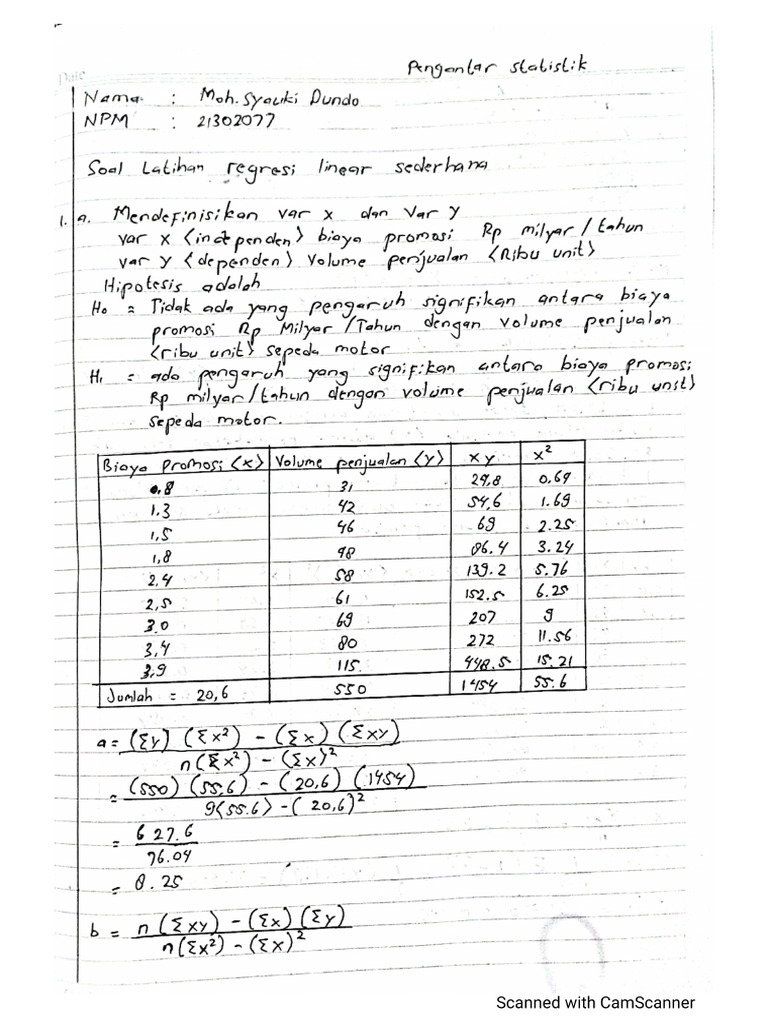 Date
Pengantar statistik
Nama : Moh. Syauki Dundo
NPM : 21302077
Soal Latihan regresi linear sederhana
1. a. Mendefinisikan var x dan Var y
var x <independen> biaya promosi Rp milyar / tahun
var y <dependen> Volume penjualan <Ribu unit>
Hipotesis adalah
H₀ = Tidak ada yang pengaruh signifikan antara biaya
promosi Rp Milyar / Tahun dengan volume penjualan
<ribu unit> sepeda motor
H₁ = ada pengaruh yang signifikan antara biaya promosi
Rp milyar / tahun dengan volume penjualan <ribu unit>
sepeda motor.
Biaya promosi <x> Volume penjualan <y> xy x²
0,8 31 24,8 0,64
1.3 42 54,6 1.69
1,5 46 69 2.25
1,8 48 86.4 3.24
2.4 58 139.2 5.76
2,5 61 152.5 6.25
3.0 69 207 9
3,4 80 272 11.56
3,9 115 448.5 15.21
Jumlah = 20,6 550 1454 55.6
a = (Σy) (Σx²) - (Σx) (Σxy)
n(Σx²) - (Σx)²
= (550) (55,6) - (20,6) (1454)
9(55.6) - (20,6)²
= 627.6
76.04
= 8.25
b = n (Σxy) - (Σx) (Σy)
n(Σx²) - (Σx)²
Scanned with CamScanner